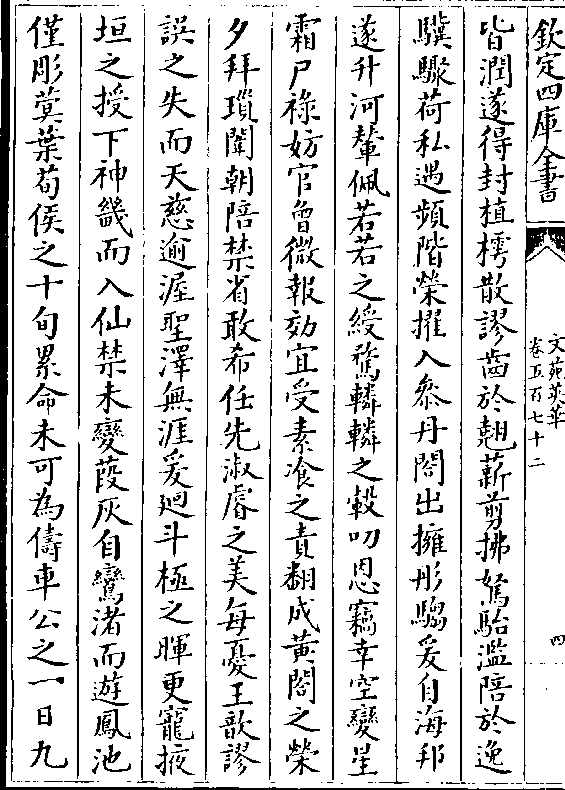 欽定四庫全書
文苑英華
卷五百七十二
四
皆潤遂得封植樗散謬齒於翹薪剪拂駑駘濫陪於逸
驥騄荷私遇頻階榮擢入叅丹閤出擁彤騶爰自海邦
遂升河輦佩若若之綬騖轔轔之轂叨恩竊幸空變星
霜尸禄妨官曾微報効宜受素飡之責翻成黄閤之榮
夕拜瑣闈朝陪禁省敢希任先淑睿之美每憂王歆謬
誤之失而天慈逾渥聖澤無涯爰廻斗極之暉更寵掖
垣之授下神畿而入仙禁未變葭灰自鸞渚而遊鳳池
僅彫蓂葉荀侯之十旬累命未可為儔車公之一日九